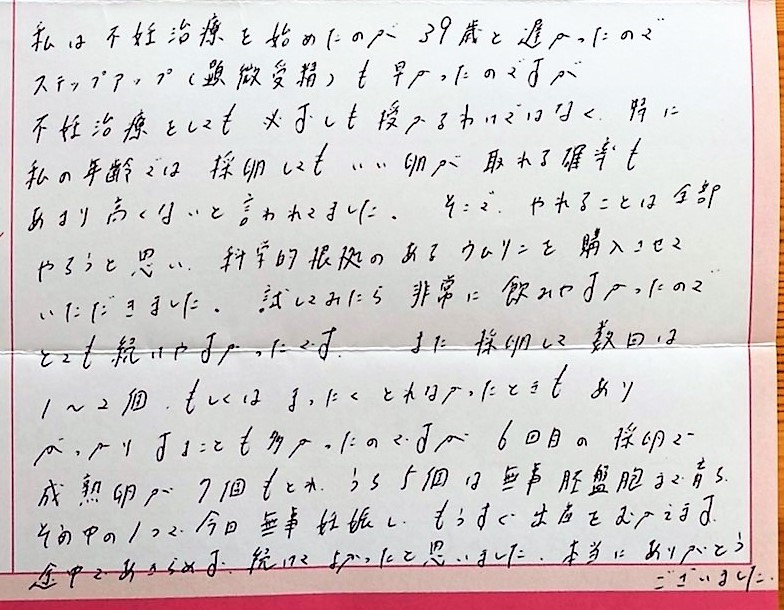 私は不妊治療を始めたのが39歳と遅かったので
ステップアップ(顕微受精)も早かったのですが
不妊治療をしても必ずしも授かるわけではなく、特に
私の年齢では採卵してもいい卵が取れる確率も
あまり高くないと言われてました。そこで、やれることは全部
やろうと思い、科学的根拠のあるウムリンを購入させて
いただきました。試してみたら非常に飲みやすかったので
とても続けやすかったです。また採卵して数回は
1〜2個、もしくはまったくとれなかったときもあり
がっかりすることも多かったのですが6回目の採卵で
成熟卵が7個もとれ、うち5個は無事胚盤胞まで育ち、
その中の1つで今回無事妊娠し、もうすぐ出産をむかえます。
途中であきらめず、続けてよかったと思いました。本当にありがとう
ございました。